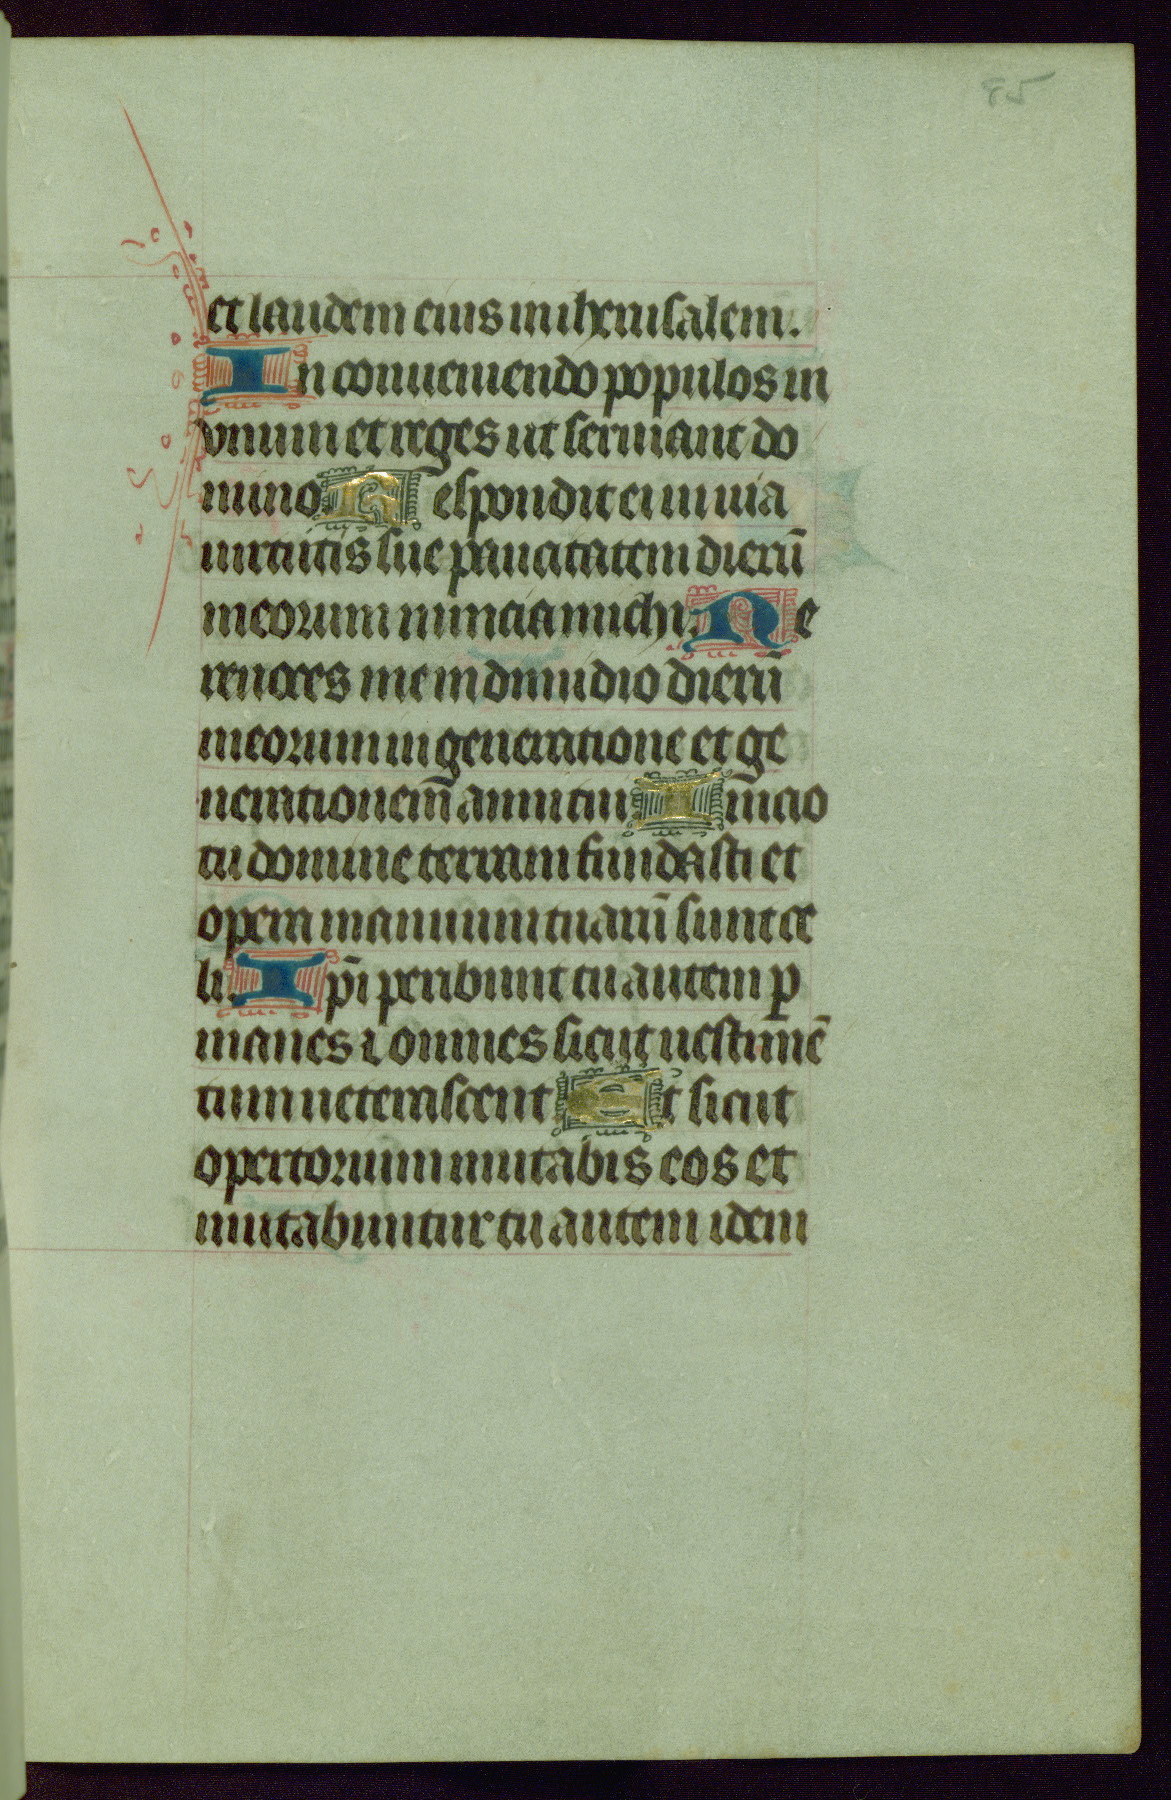 85
et laudem eius in iherusalem.
In conueniendo populos in
vnum et reges ut seruiant do
mino. Respondit ei in uia
uirtutis sue paucitatem dierū
meorum nuncia michi. Ne
reuoces me in dimidio dierū
meorum in generatione et ge
nerationem̄ anni tui. Inicio
tu domine terram fundasti et
opera manuum tuarū sunt ce
li. Ip̄i peribunt tu autem ꝑ
manes ⁊ omnes sicut uestimē
tum ueterascent. Et sicut
opertorium mutabis eos et
mutabuntur tu autem idem